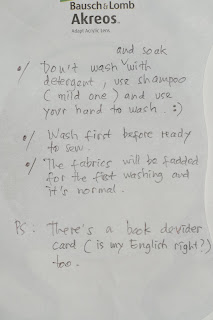 Bausch & Lomb
Akreos.
Adapt Acrylic Lens
and soak
o/ Don't wash ˅ with
detergent, use shampoo
(mild one) and use
your hand to wash. :)
o/ Wash first before ready
to sew.
o/ The fabrics will be fadded
for the first washing and
it's normal.
PS : There's a book devider
card (is my English right?)
too.